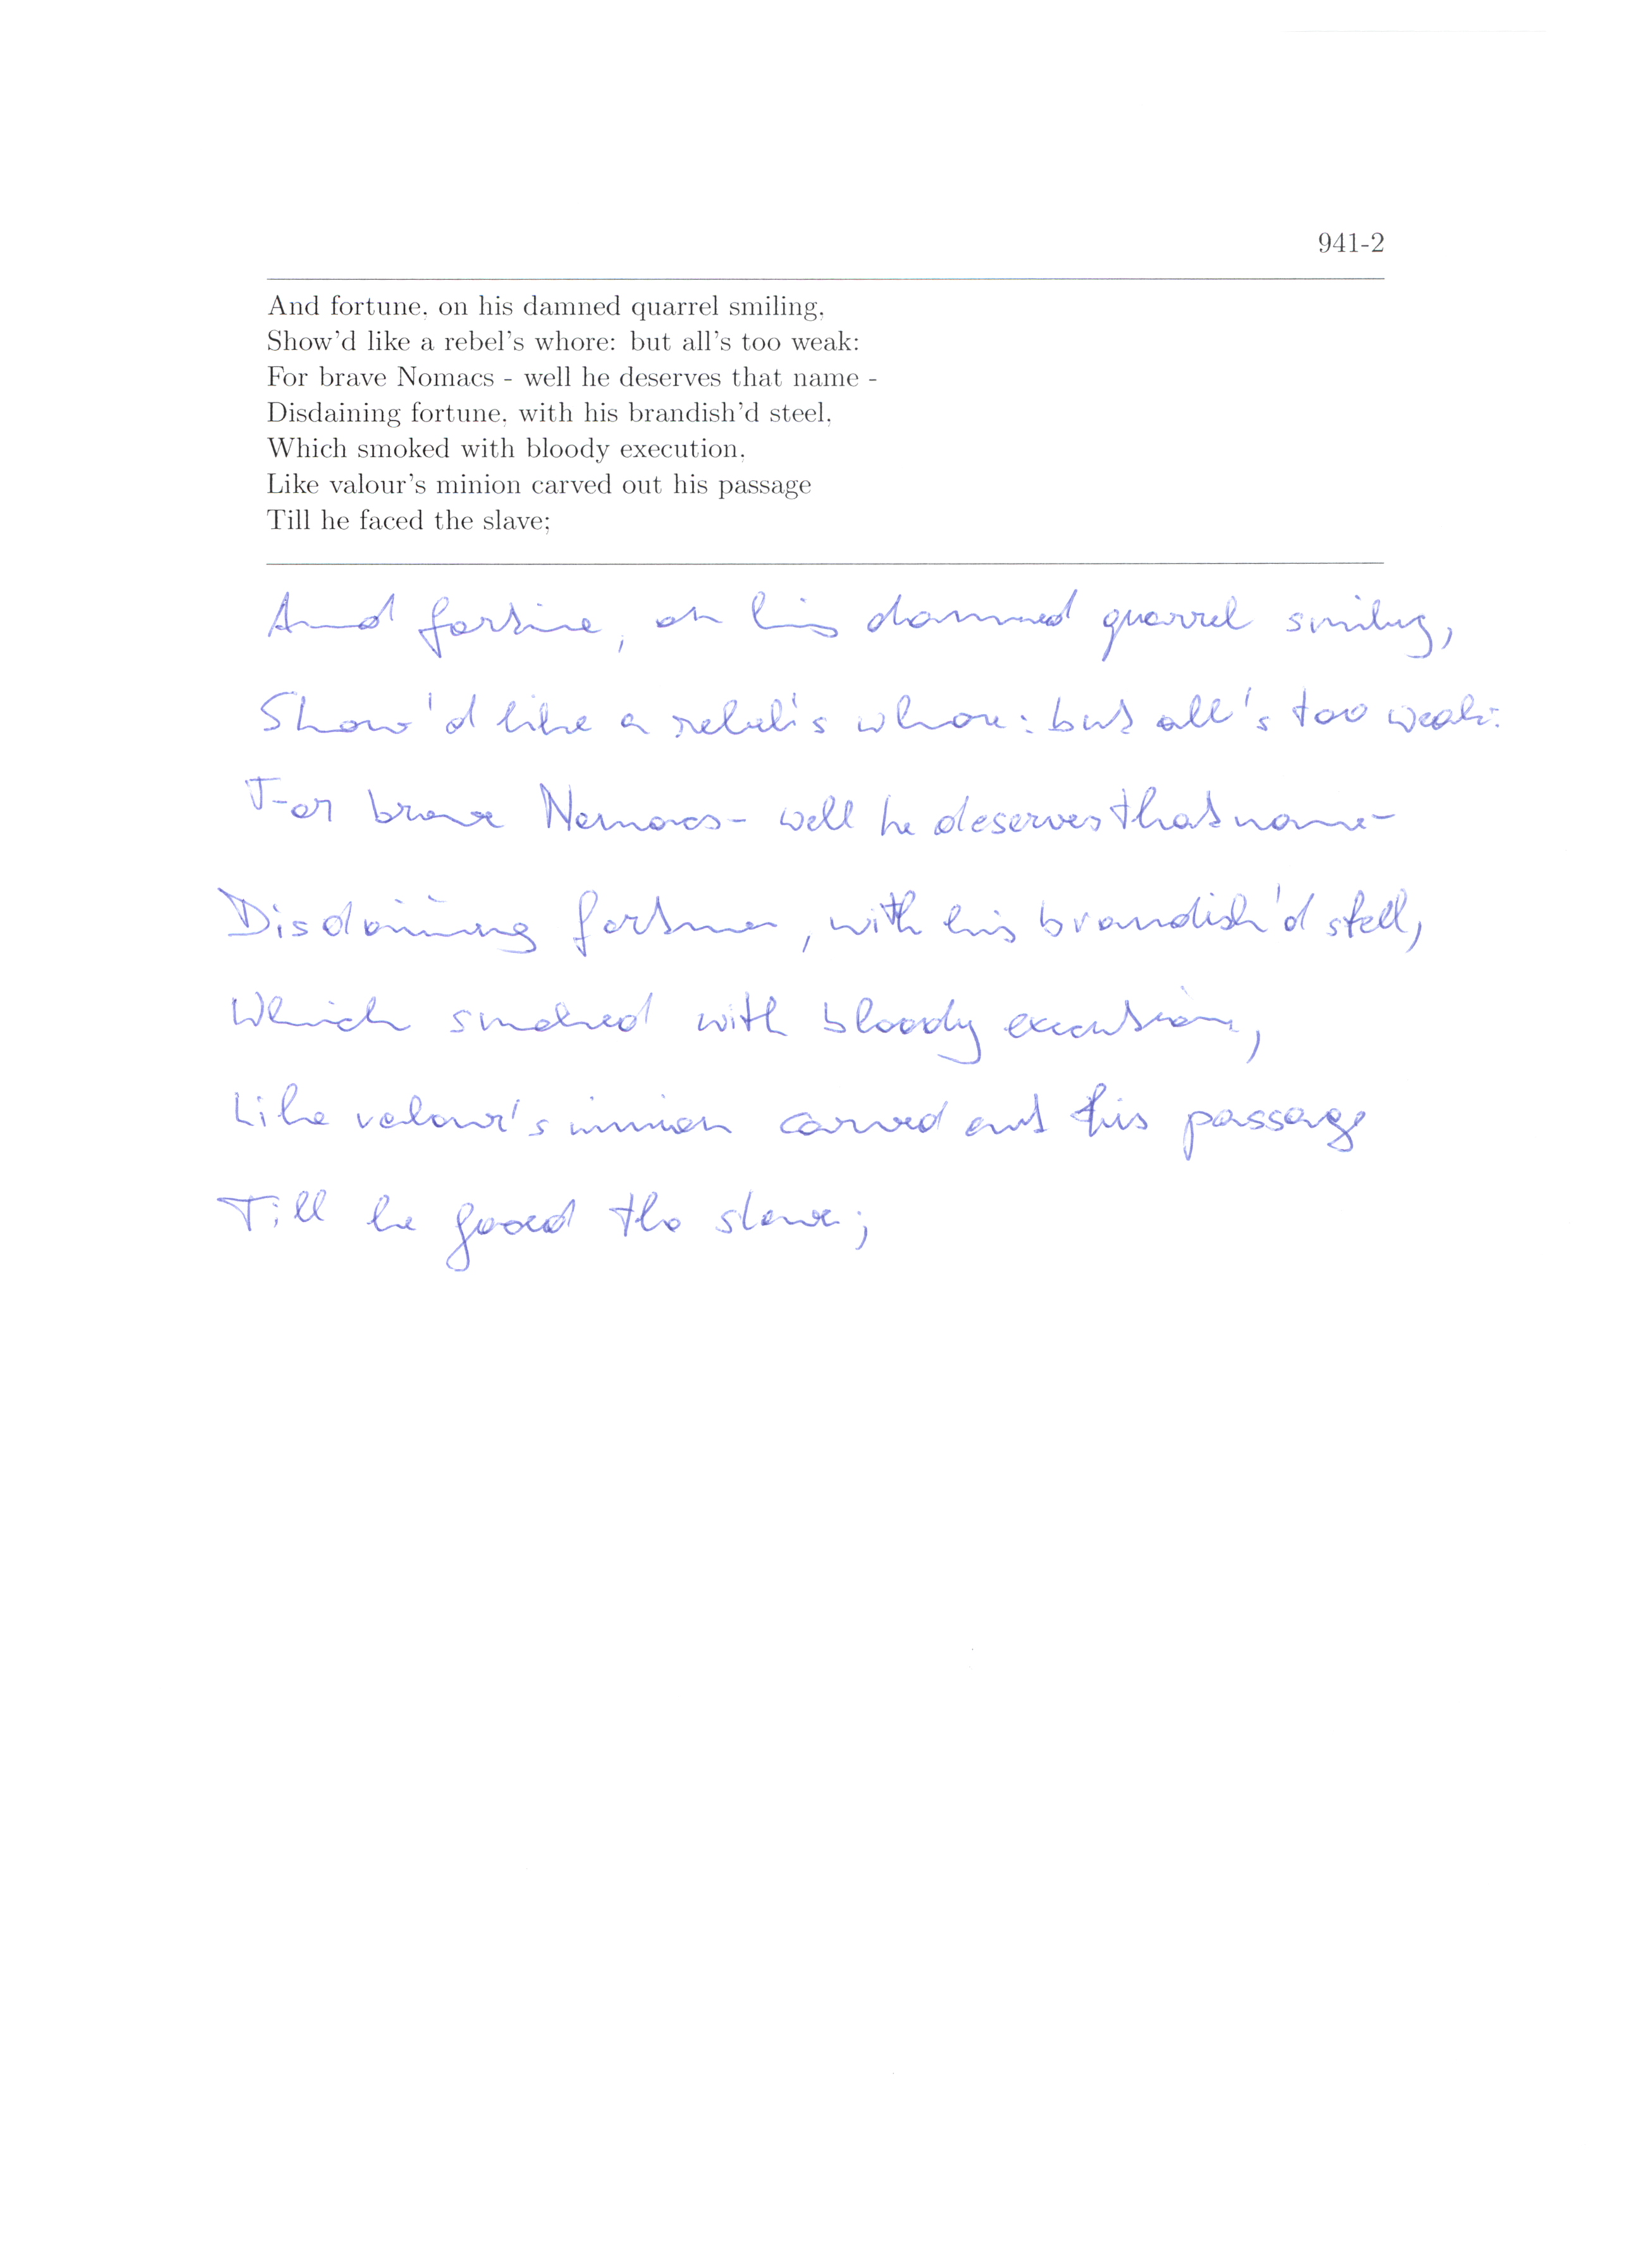 941-2
And fortune, on his damned quarrel smiling,
Show'd like a rebel's whore: but all's too weak:
For brave Nomacs - well he deserves that name -
Disdaining fortune, with his brandish'd steel,
Which smoked with bloody execution,
Like valour's minion carved out his passage
Till he faced the slave;
And fortune, on his damned quarrel smiling,
Show'd like a rebel's whore: but all's too weak:
For brave Nomacs - well he deserves that name -
Disdaining fortune, with his brandish'd stell,
Which smoked with bloody execution,
Like valour's minion carved out this passage
Till he faced the slave;